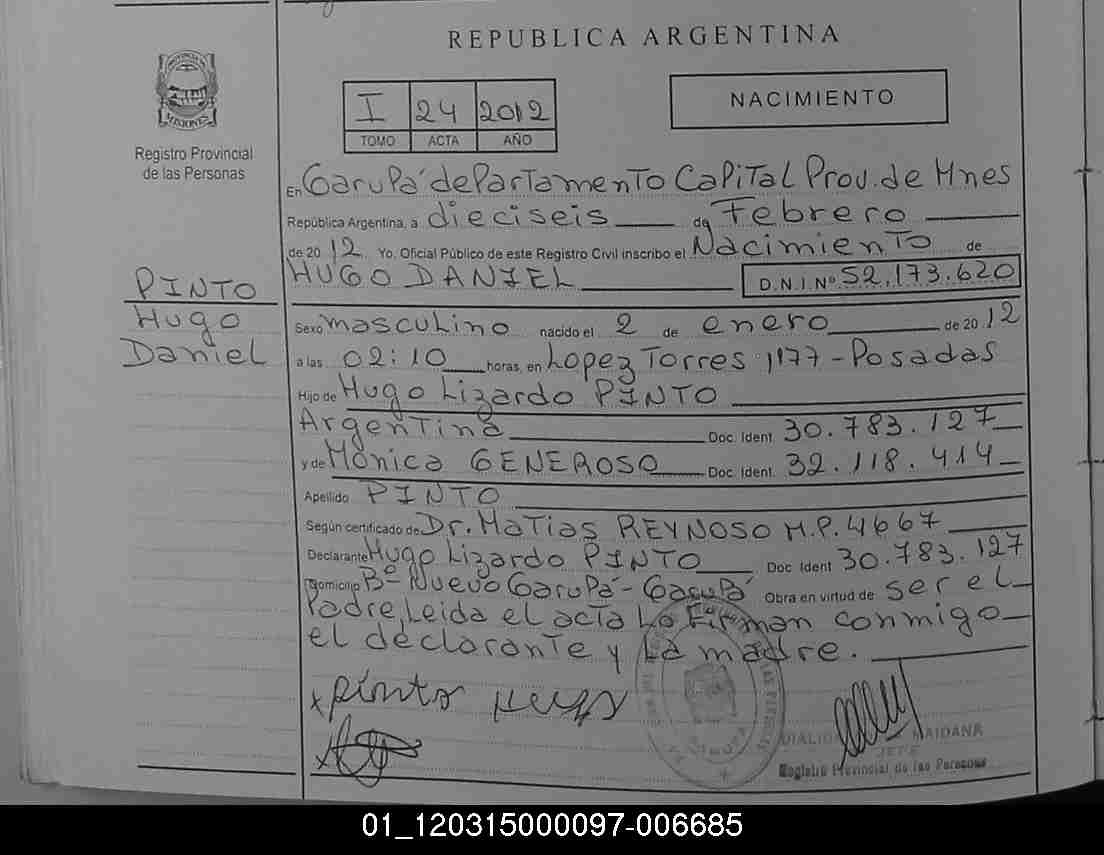 REPUBLICA ARGENTINA
PROVINCIA DE
MISIONES
Registro Provincial
de las Personas
I 24 2012
TOMO ACTA AÑO
NACIMIENTO
En Garupá departamento Capital Prov. de Mnes
República Argentina, a dieciseis de Febrero
de 2012 Yo. Oficial Público de este Registro Civil inscribo el Nacimiento de
HUGO DANIEL D.N.I. Nº 52.173.620
PINTO
Hugo
Daniel
Sexo masculino nacido el 2 de enero de 2012
a las 02:10 horas, en Lopez Torres 1177 - Posadas
Hijo de Hugo Lizardo PINTO
Argentina Doc. Ident. 30.783.127
y de Mónica GENEROSO Doc. Ident. 32.118.414
Apellido PINTO
Según certificado de Dr. Matias REYNOSO M.P. 4667
Declarante Hugo Lizardo PINTO Doc. Ident 30.783.127
Domicilio Bº Nuevo Garupá - Garupá Obra en virtud de ser el
Padre, Leida el acta La Firman conmigo
el declarante y La madre.
x pinto Hugo
MAIDANA
JEFE
Registro Provincial de las Personas
01_120315000097-006685